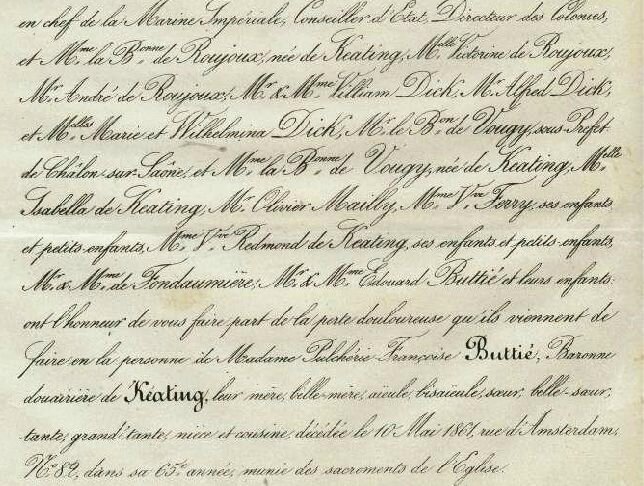 en chef de la Marine Impériale, Conseiller d'Etat, Directeur des Colonies,
et Mme la Bonne de Roujoux, née de Keating, Melle Victorine de Roujoux,
Mr André de Roujoux, Mr & Mme William Dick, Mr Alfred Dick,
et Melles Marie et Wilhelmina Dick, Mr le Bon de Vougy, sous-Préfet
de Châlon-sur-Saône, et Mme la Bonne de Vougy, née de Keating, Melle
Isabella de Keating, Mr Olivier Mailly, Mme Vve Ferry, ses enfants
et petits-enfants, Mme Vve Redmond de Keating, ses enfants et petits-enfants,
Mr & Mme de Fondaumière, Mr & Mme Edouard Buttié et leurs enfants
ont l'honneur de vous faire part de la perte douloureuse qu'ils viennent de
faire en la personne de Madame Pulchérie Françoise Buttié, Baronne
douairière de Keating, leur mère, belle-mère, aïeule, bisaïeule, sœur, belle-sœur,
tante, grand'tante, nièce et cousine, décédée le 10 Mai 1861, rue d'Amsterdam,
No 82, dans sa 65e année, munie des sacrements de l'Eglise.